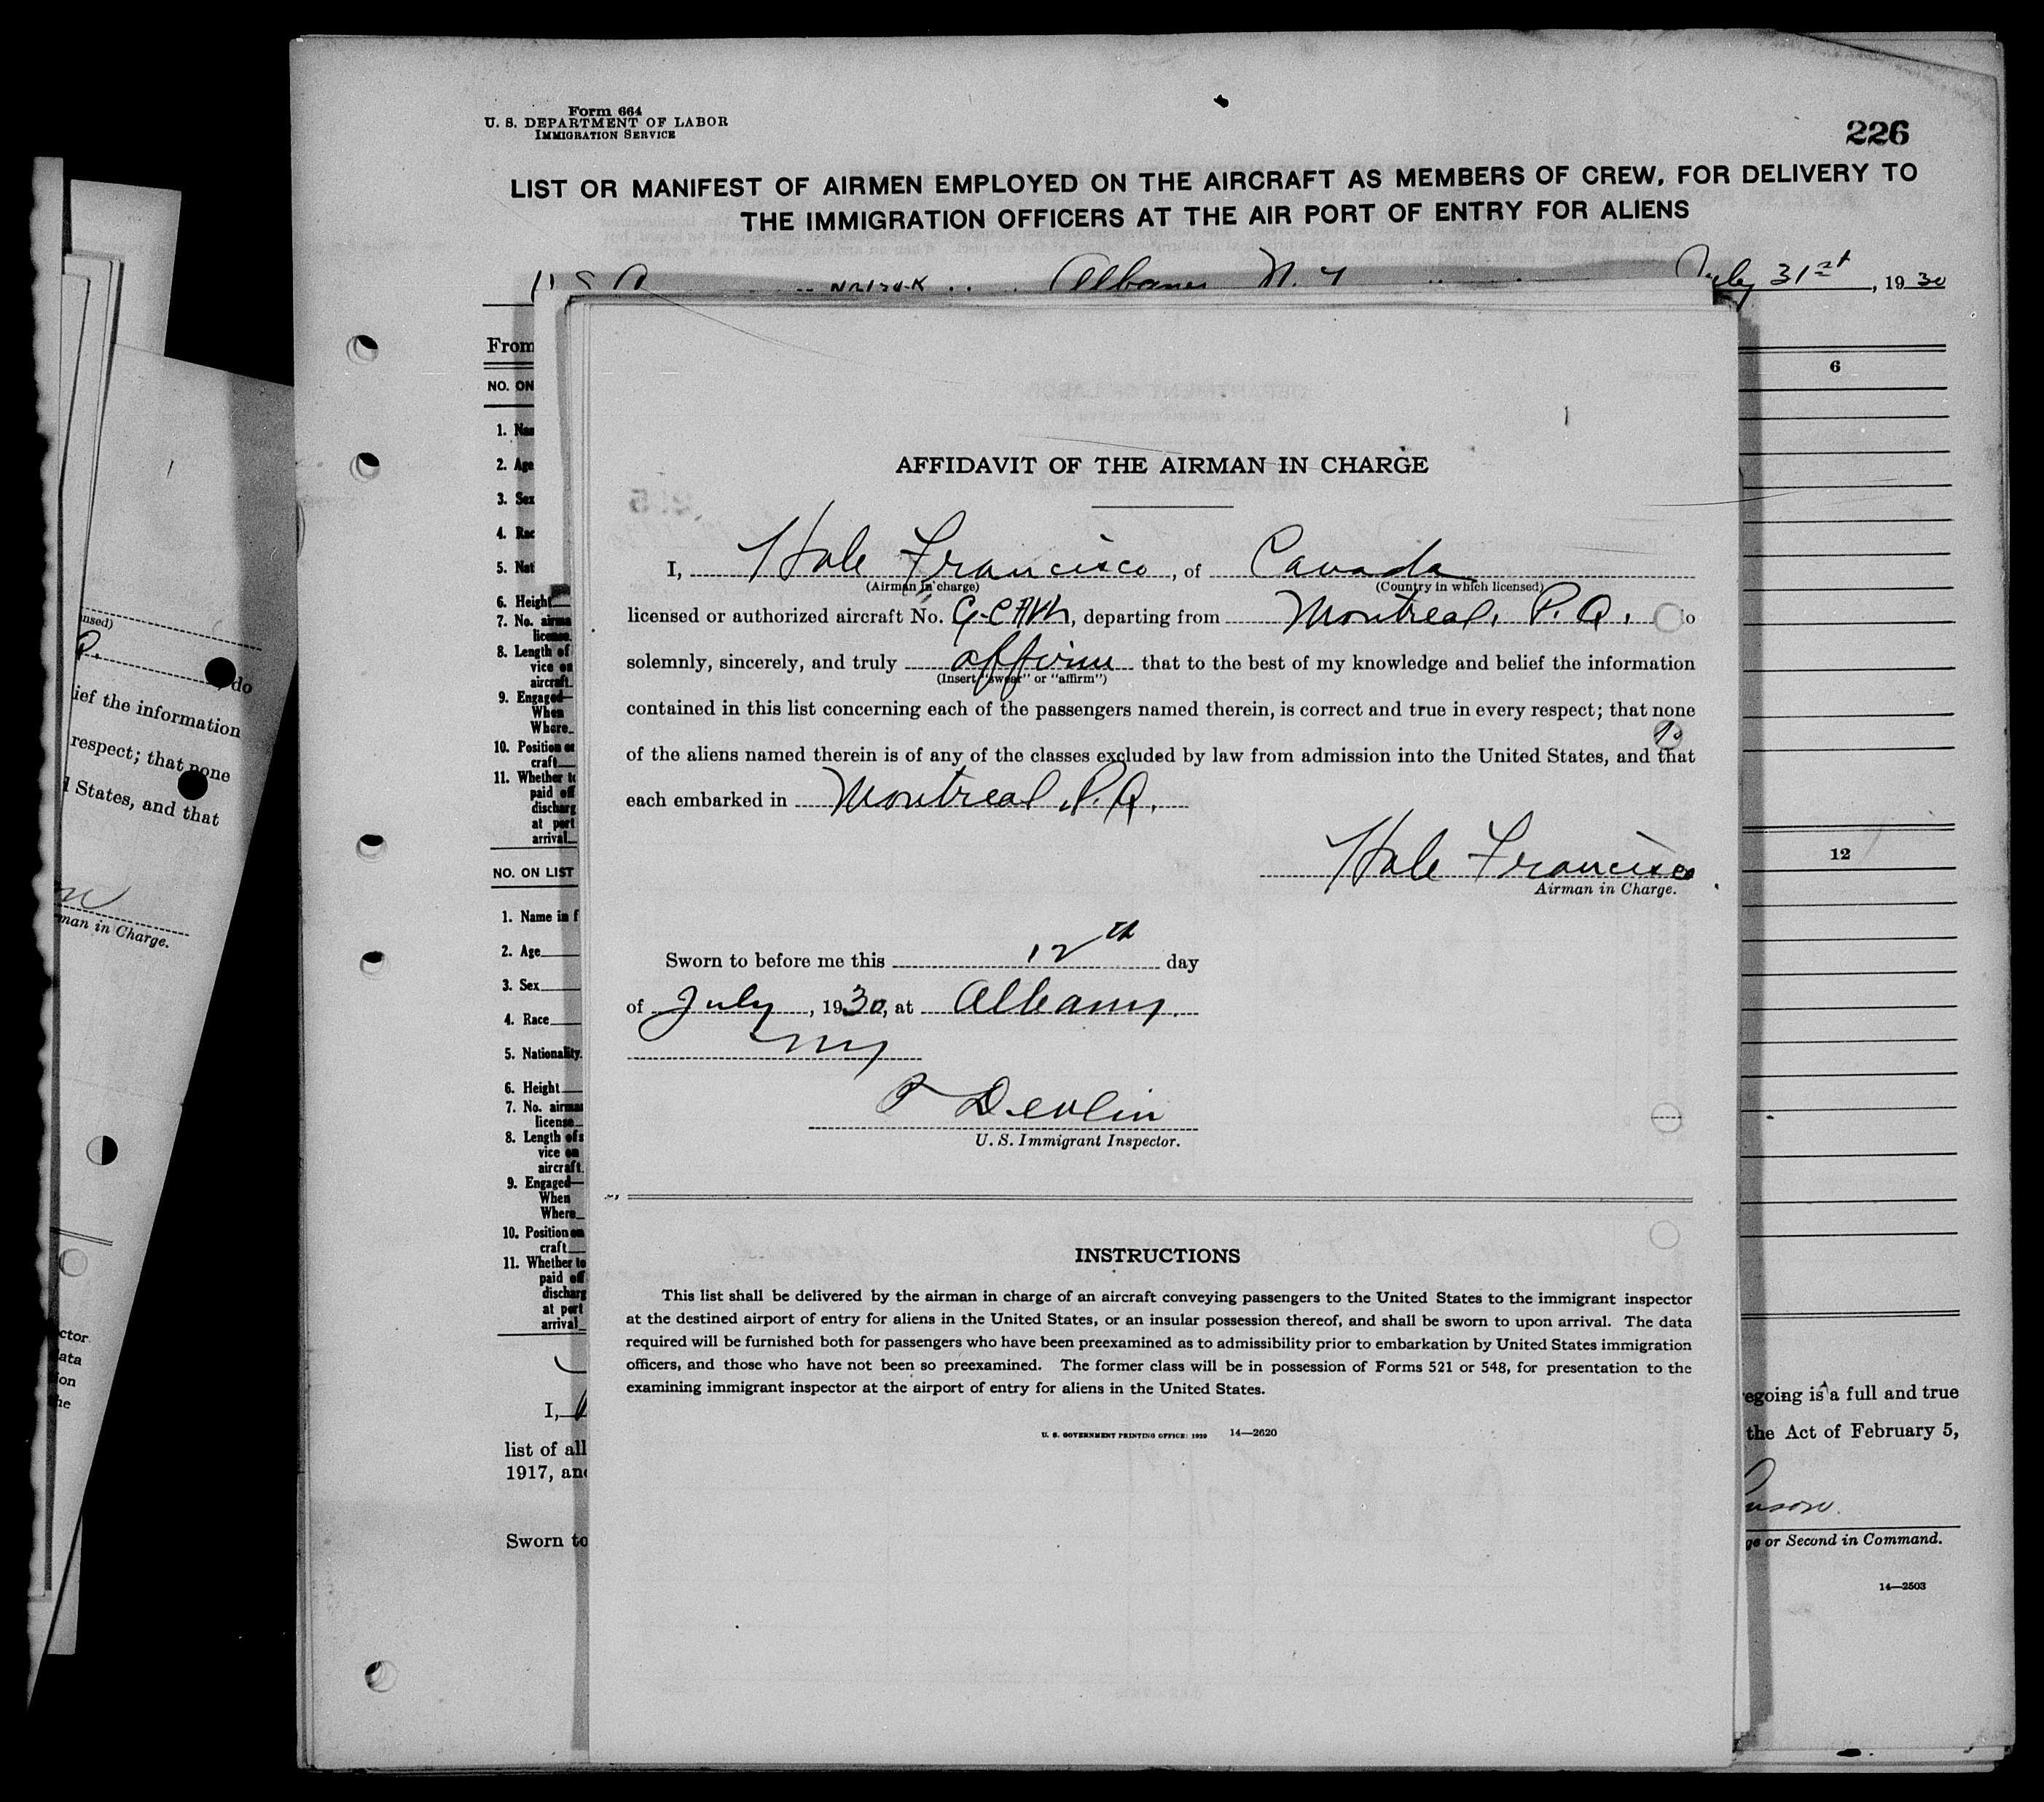 Form 664
U. S. DEPARTMENT OF LABOR
IMMIGRATION SERVICE
226
LIST OR MANIFEST OF AIRMEN EMPLOYED ON THE AIRCRAFT AS MEMBERS OF CREW, FOR DELIVERY TO
THE IMMIGRATION OFFICERS AT THE AIR PORT OF ENTRY FOR ALIENS
Albany N. Y July 31st, 1930
From
NO. ON
6
1. Nam
2. Age
3. Sex
4. Rac
5. Nat
6. Height
7. No. airma
license
8. Length of
vice on
aircraft
9. Engaged—
When
Where
10. Position on
craft
11. Whether to
paid off
discharg
at port
arrival
NO. ON LIST
12
1. Name in f
2. Age
3. Sex
4. Race
5. Nationality
6. Height
7. No. airman
license
8. Length of s
vice on
aircraft
9. Engaged—
When
Where
10. Position on
craft
11. Whether to
paid off
discharg
at port
arrival
I,
list of all
1917, and
Sworn to
egoing is a full and true
the Act of February 5,
nson.
ge or Second in Command.
14—2503
AFFIDAVIT OF THE AIRMAN IN CHARGE
I, Hale Francisco, of Canada
(Airman in charge) (Country in which licensed)
licensed or authorized aircraft No. , departing from Montreal, P. Q. o
solemnly, sincerely, and truly affirm that to the best of my knowledge and belief the information
(Insert "swear" or "affirm")
contained in this list concerning each of the passengers named therein, is correct and true in every respect; that none
of the aliens named therein is of any of the classes excluded by law from admission into the United States, and that
each embarked in Montreal, P. Q.
Hale Francisco
Airman in Charge.
Sworn to before me this 12th day
of July, 1930, at Albany
NY
P Devlin
U. S. Immigrant Inspector.
INSTRUCTIONS
This list shall be delivered by the airman in charge of an aircraft conveying passengers to the United States to the immigrant inspector
at the destined airport of entry for aliens in the United States, or an insular possession thereof, and shall be sworn to upon arrival. The data
required will be furnished both for passengers who have been preexamined as to admissibility prior to embarkation by United States immigration
officers, and those who have not been so preexamined. The former class will be in possession of Forms 521 or 548, for presentation to the
examining immigrant inspector at the airport of entry for aliens in the United States.
U. S. GOVERNMENT PRINTING OFFICE: 1929 14—2620
nsed)
Q.
, do
ief the information
respect; that none
d States, and that
rman in Charge.
ctor
ata
ion
he